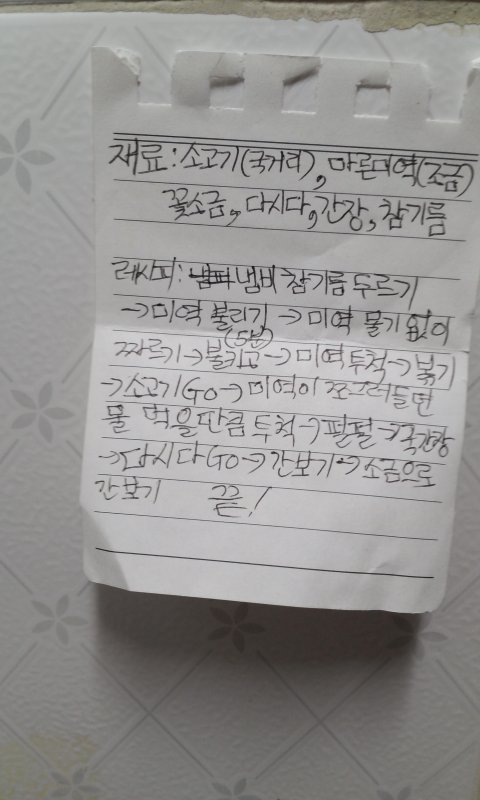 재료: 소고기(국거리), 마른미역(조금)
꽃소금, 다시다, 간장, 참기름
레시피: 냄비 참기름 두르기
→미역 불리기 → 미역 물기 없이
(5분)
짜르기→불키고→미역 투척→볶기
→소고기 Go→미역이 쪼그러들면
물 먹을만큼 투척→펄펄→국간장
→다시다 Go→간보기→소금으로
간보기 끝!